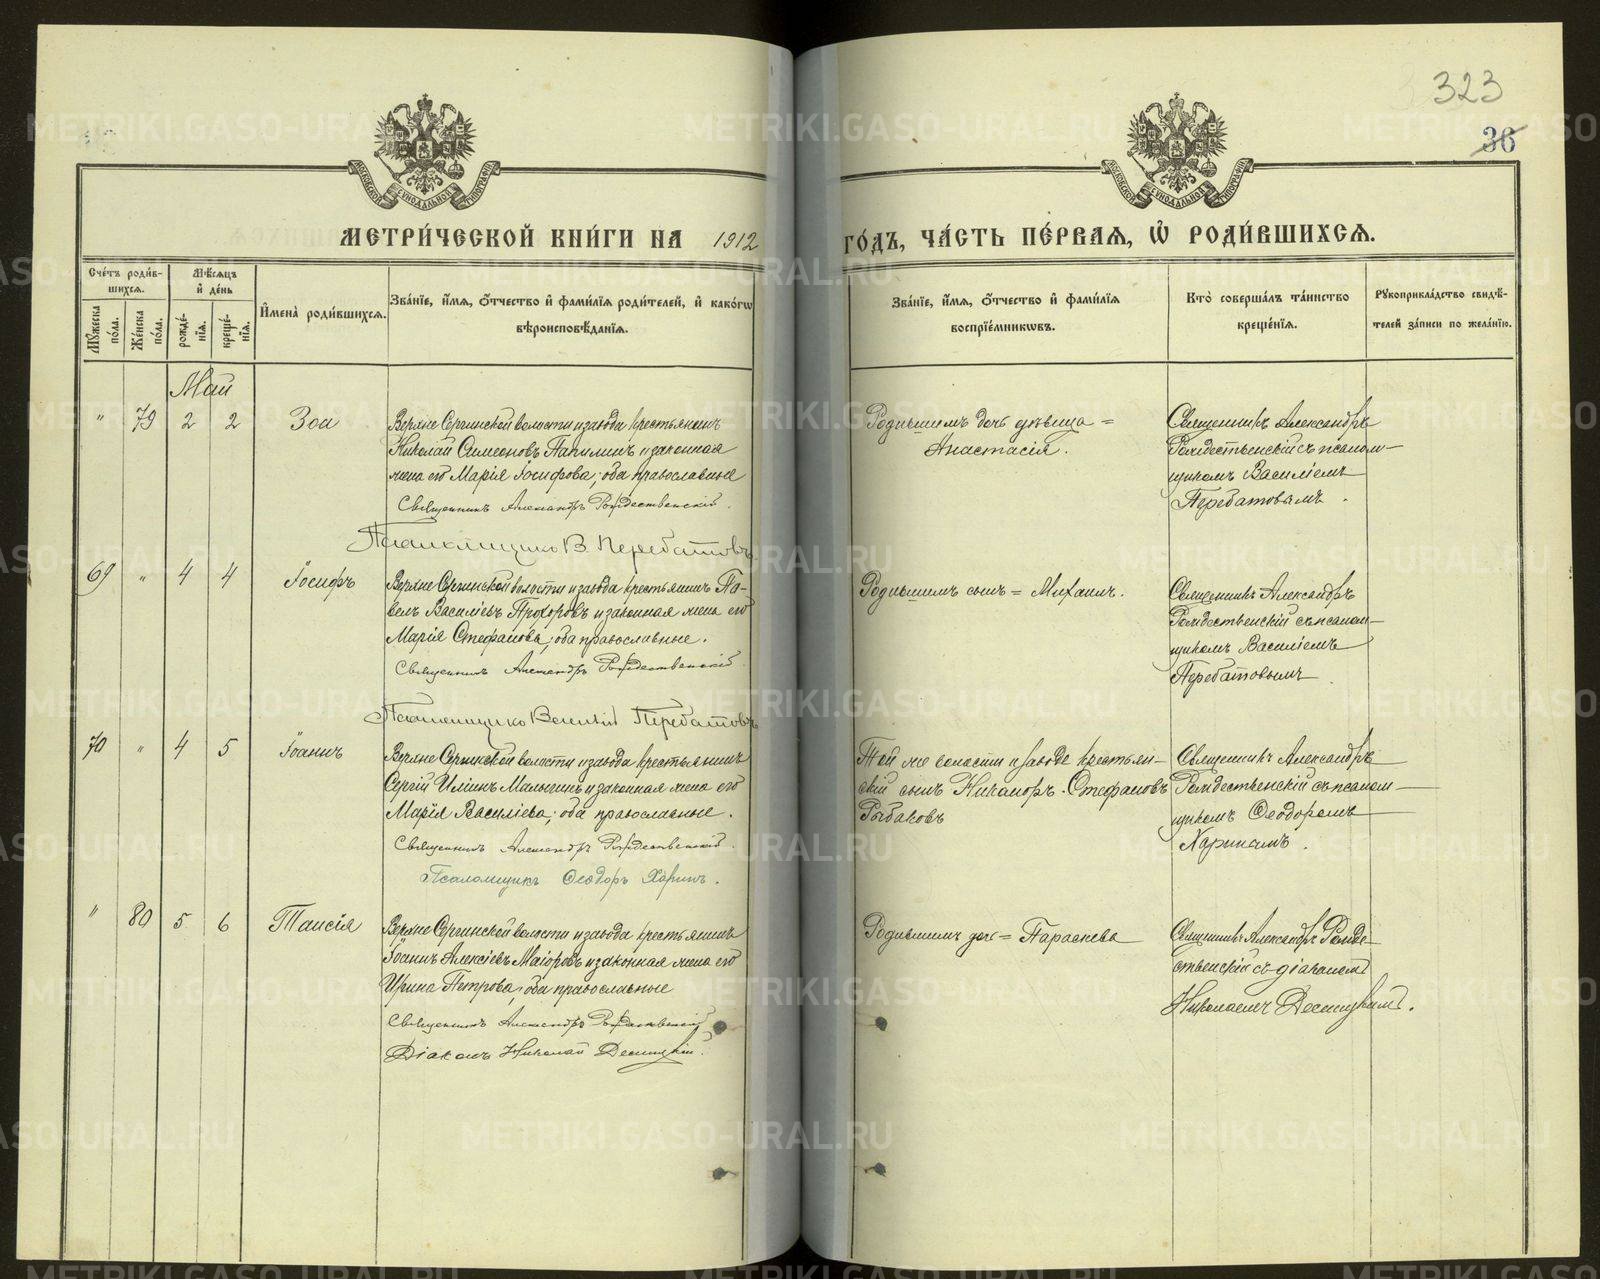 323
36
МОСКОВСКОЙ СѴНОДАЛЬНОЙ ТИПОГРАФІИ
МОСКОВСКОЙ СѴНОДАЛЬНОЙ ТИПОГРАФІИ
МЕТРИ́ЧЕСКОЙ КНИ́ГИ НА 1912
ГО́ДЪ, ЧА́СТЬ ПЕ́РВАЯ, Ѡ РОДИ́ВШИХСЯ.
Сче́тъ роди́в-
шихся.
Мѣ́сяцъ
и́ де́нь
Мꙋ́жеска по́ла.
Же́нска по́ла.
рожде́-нїя.
креще́-нїя.
И́мена̀ роди́вшихся.
Зва́нїе, и́мя, о́тчество и́ фами́лїя роди́телей, и́ како́гѡ
вѣроисповѣ́данїя.
Зва́нїе, и́мя, о́тчество и́ фами́лїя
воспрїе́мникѡвъ.
Кто̀ соверша́лъ та́инство
креще́нїя.
Рꙋкоприкла́дство свидѣ́-
телей за́писи по жела́нїю.
Май
" 79 2 2 Зоя
Верхне Сергинской волости и завода крестьянинъ
Николай Симеоновъ Папилинъ и законная
жена его Марія Іосифова; оба православные
Священникъ Александръ Рождественскій.
Псаломщикъ В Перебатовъ
Родившимъ дочь дѣвица =
Анастасія.
Священникъ Александръ
Рождественскій съ псалом-
щикомъ Василіемъ
Перебатовымъ.
69 " 4 4 Іосифъ
Верхне Сергинской волости и завода крестьянинъ Па-
велъ Василіевъ Прохоровъ и законная жена его
Марія Стефанова; оба православные.
Священникъ Александръ Рождественскій.
Псаломщикъ Василій Перебатовъ
Родившимъ сынъ = Михаилъ.
Священникъ Александръ
Рождественскій съ псалом-
щикомъ Василіемъ
Перебатовымъ
70 " 4 5 Іоаннъ
Верхне Сергинской волости и завода крестьянинъ
Сергій Илiинъ Малыгинъ и законная жена его
Марія Василіева; оба православные.
Священникъ Александръ Рождественскій.
Псаломщикъ Ѳеодоръ Харинъ.
Той же волости и завода крестьян-
скій сынъ Никаноръ Стефановъ
Рыбаковъ
Священникъ Александръ
Рождественскій съ псалом-
щикомъ Ѳеодоромъ
Харинымъ.
" 80 5 6 Таисія
Верхне Сергинской волости и завода крестьянинъ
Іоаннъ Алексіевъ Маіоровъ и законная жена его
Ирина Петрова; оба православные
Священникъ Александръ Рождественскій
Діаконъ Николай Десницкій.
Родившимъ дочь = Параскева
Священникъ Александръ Рожде-
ственскій съ діакономъ
Николаемъ Десницкимъ.
METRIKI.GASO-URAL.RU